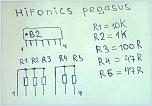 Hifonics pegasus
B2
1 7
R1 = 10K
R2 = 1K
R3 = 100R
R4 = 47R
R5 = 47R
R1 R2 R3 R4 R5
1 7